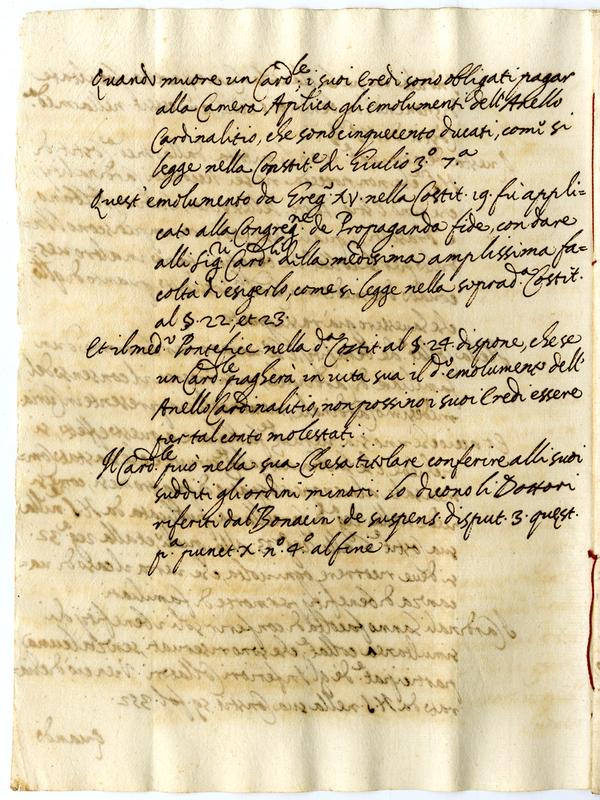 Quando muore un Card.le, i suoi Eredi sono obligati pagar
alla Camera Aplica gli emolumenti dell'Anello
Cardinalitio, che sono cinquecento ducati, come si
legge nella Constit.e di Giulio 3.o 7.a
Quest'emolumento da Greg.o XV. nella Costit. 19. fù appli=
cato alla Congreg.ne de Propaganda fide, con dare
alli Sig.ri Card.li della medesima amplissima fa=
coltà di esigerlo, come si legge nella soprad.a Costit.
al §. 22, et 23.
Et il med.o Pontefice nella d.a Costit. al §. 24. dispone, che se
un Card.le pagherà in vita sua il d.o emolumento dell'
Anello Cardinalitio, non possino i suoi Eredi essere
per tal conto molestati.
Il Card.le può nella sua Chiesa titolare conferire alli suoi
sudditi gli ordini minori. Lo dicono li Dottori
riferiti dal Bonacin. de suspens. disput. 3. quest.
p.a punct. X. n.o 4.o al fine